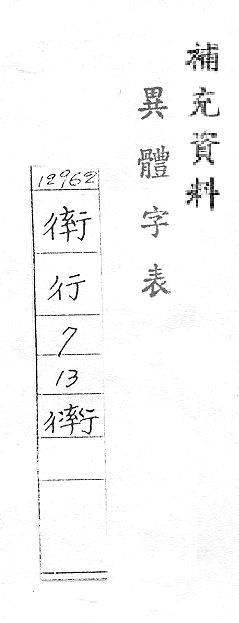 補充資料
異體字表
12962
行
7
13
𧗿